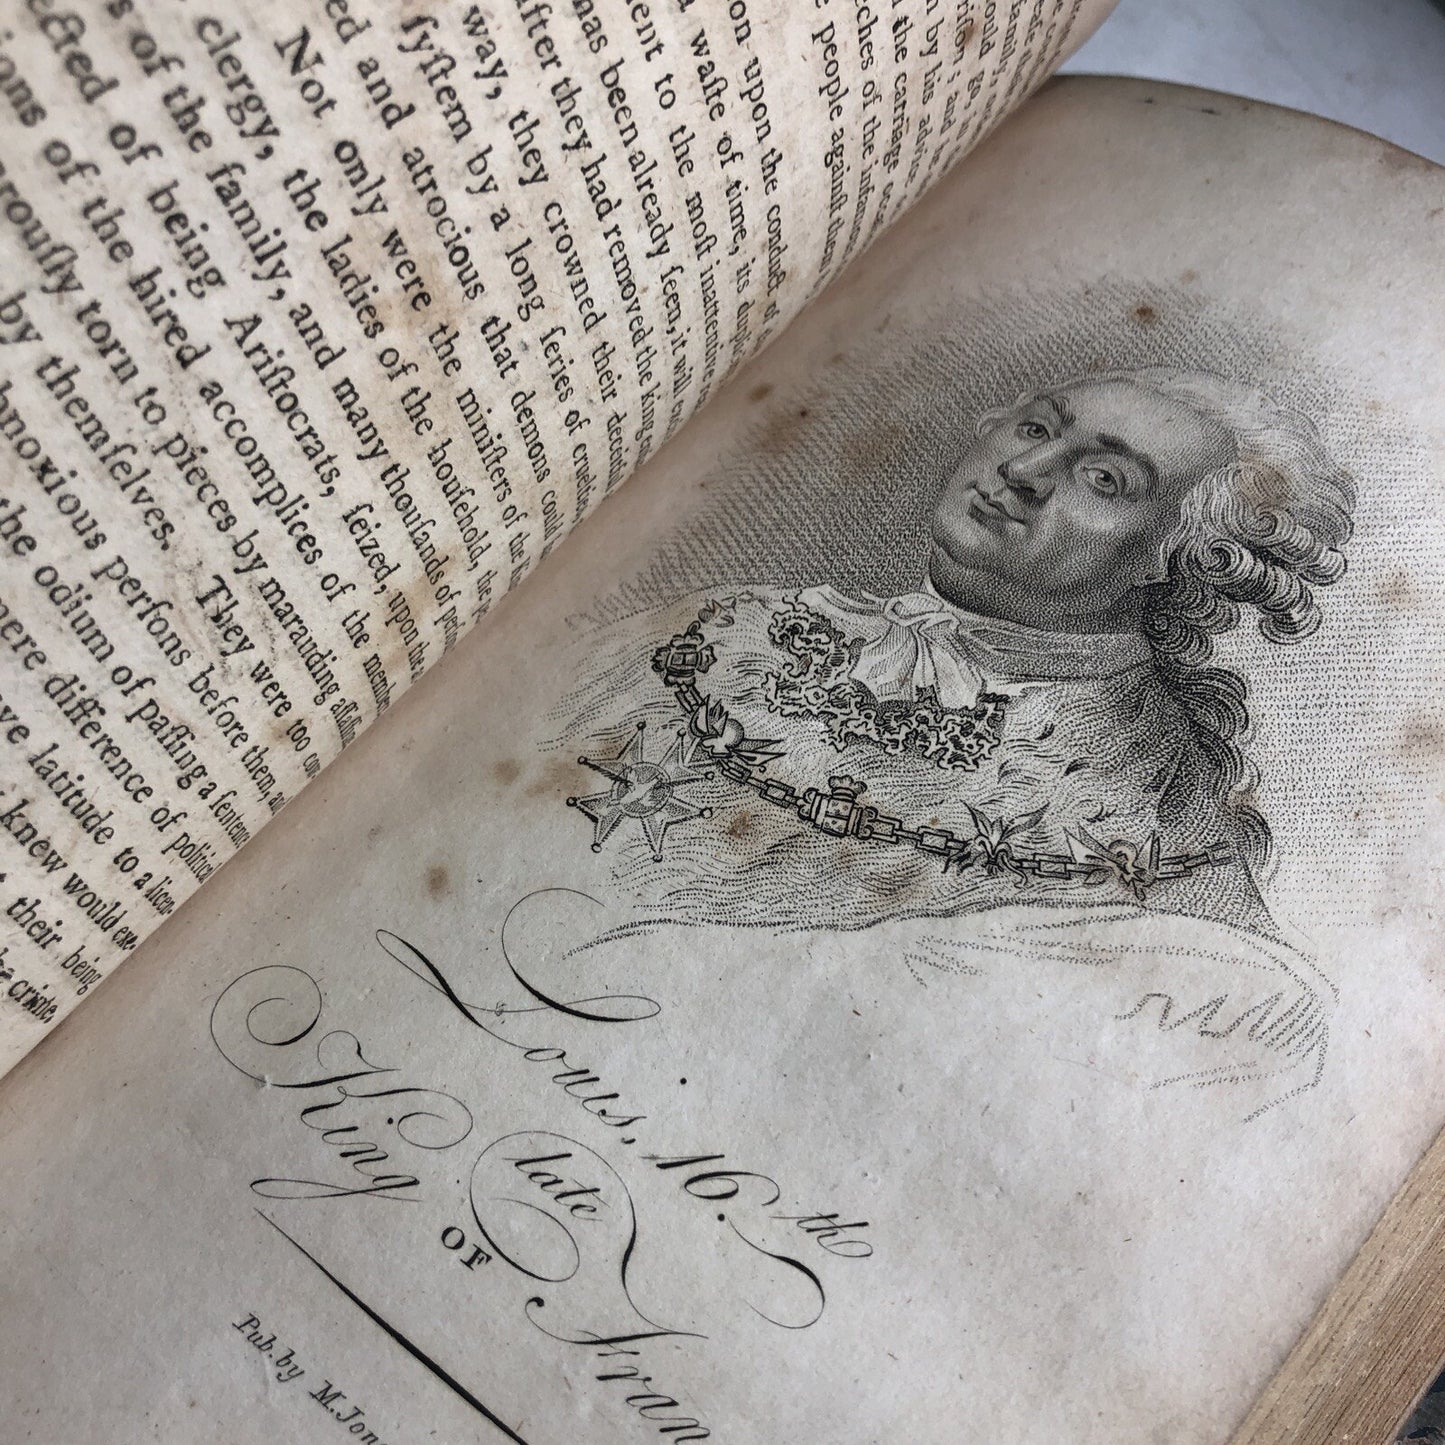 family,
ould go, in
riſon; and he
by his advice
the carriage
eches of the infamous
people againſt them
on upon the conduct of
waſte of time, its
ent to the moſt inattentive
has been already ſeen, it will
after they had removed the king
way, they crowned their deceitful
ſyſtem by a long ſeries of cruelties,
ed and atrocious that demons could
Not only were the miniſters of the King
clergy, the ladies of the houſehold, the
s of the family, and many thouſands of
ected of being Ariſtocrats, ſeized, upon the
ions of the hired accomplices of the
torn to pieces by marauding
by themſelves. They were too
bnoxious perſons before them, and
the odium of paſſing a ſentence
mere difference of political
latitude to a licen-
knew would exe-
their being
the crime.
Louis, 16.th
late
King OF Fran
Pub. by M. Jon